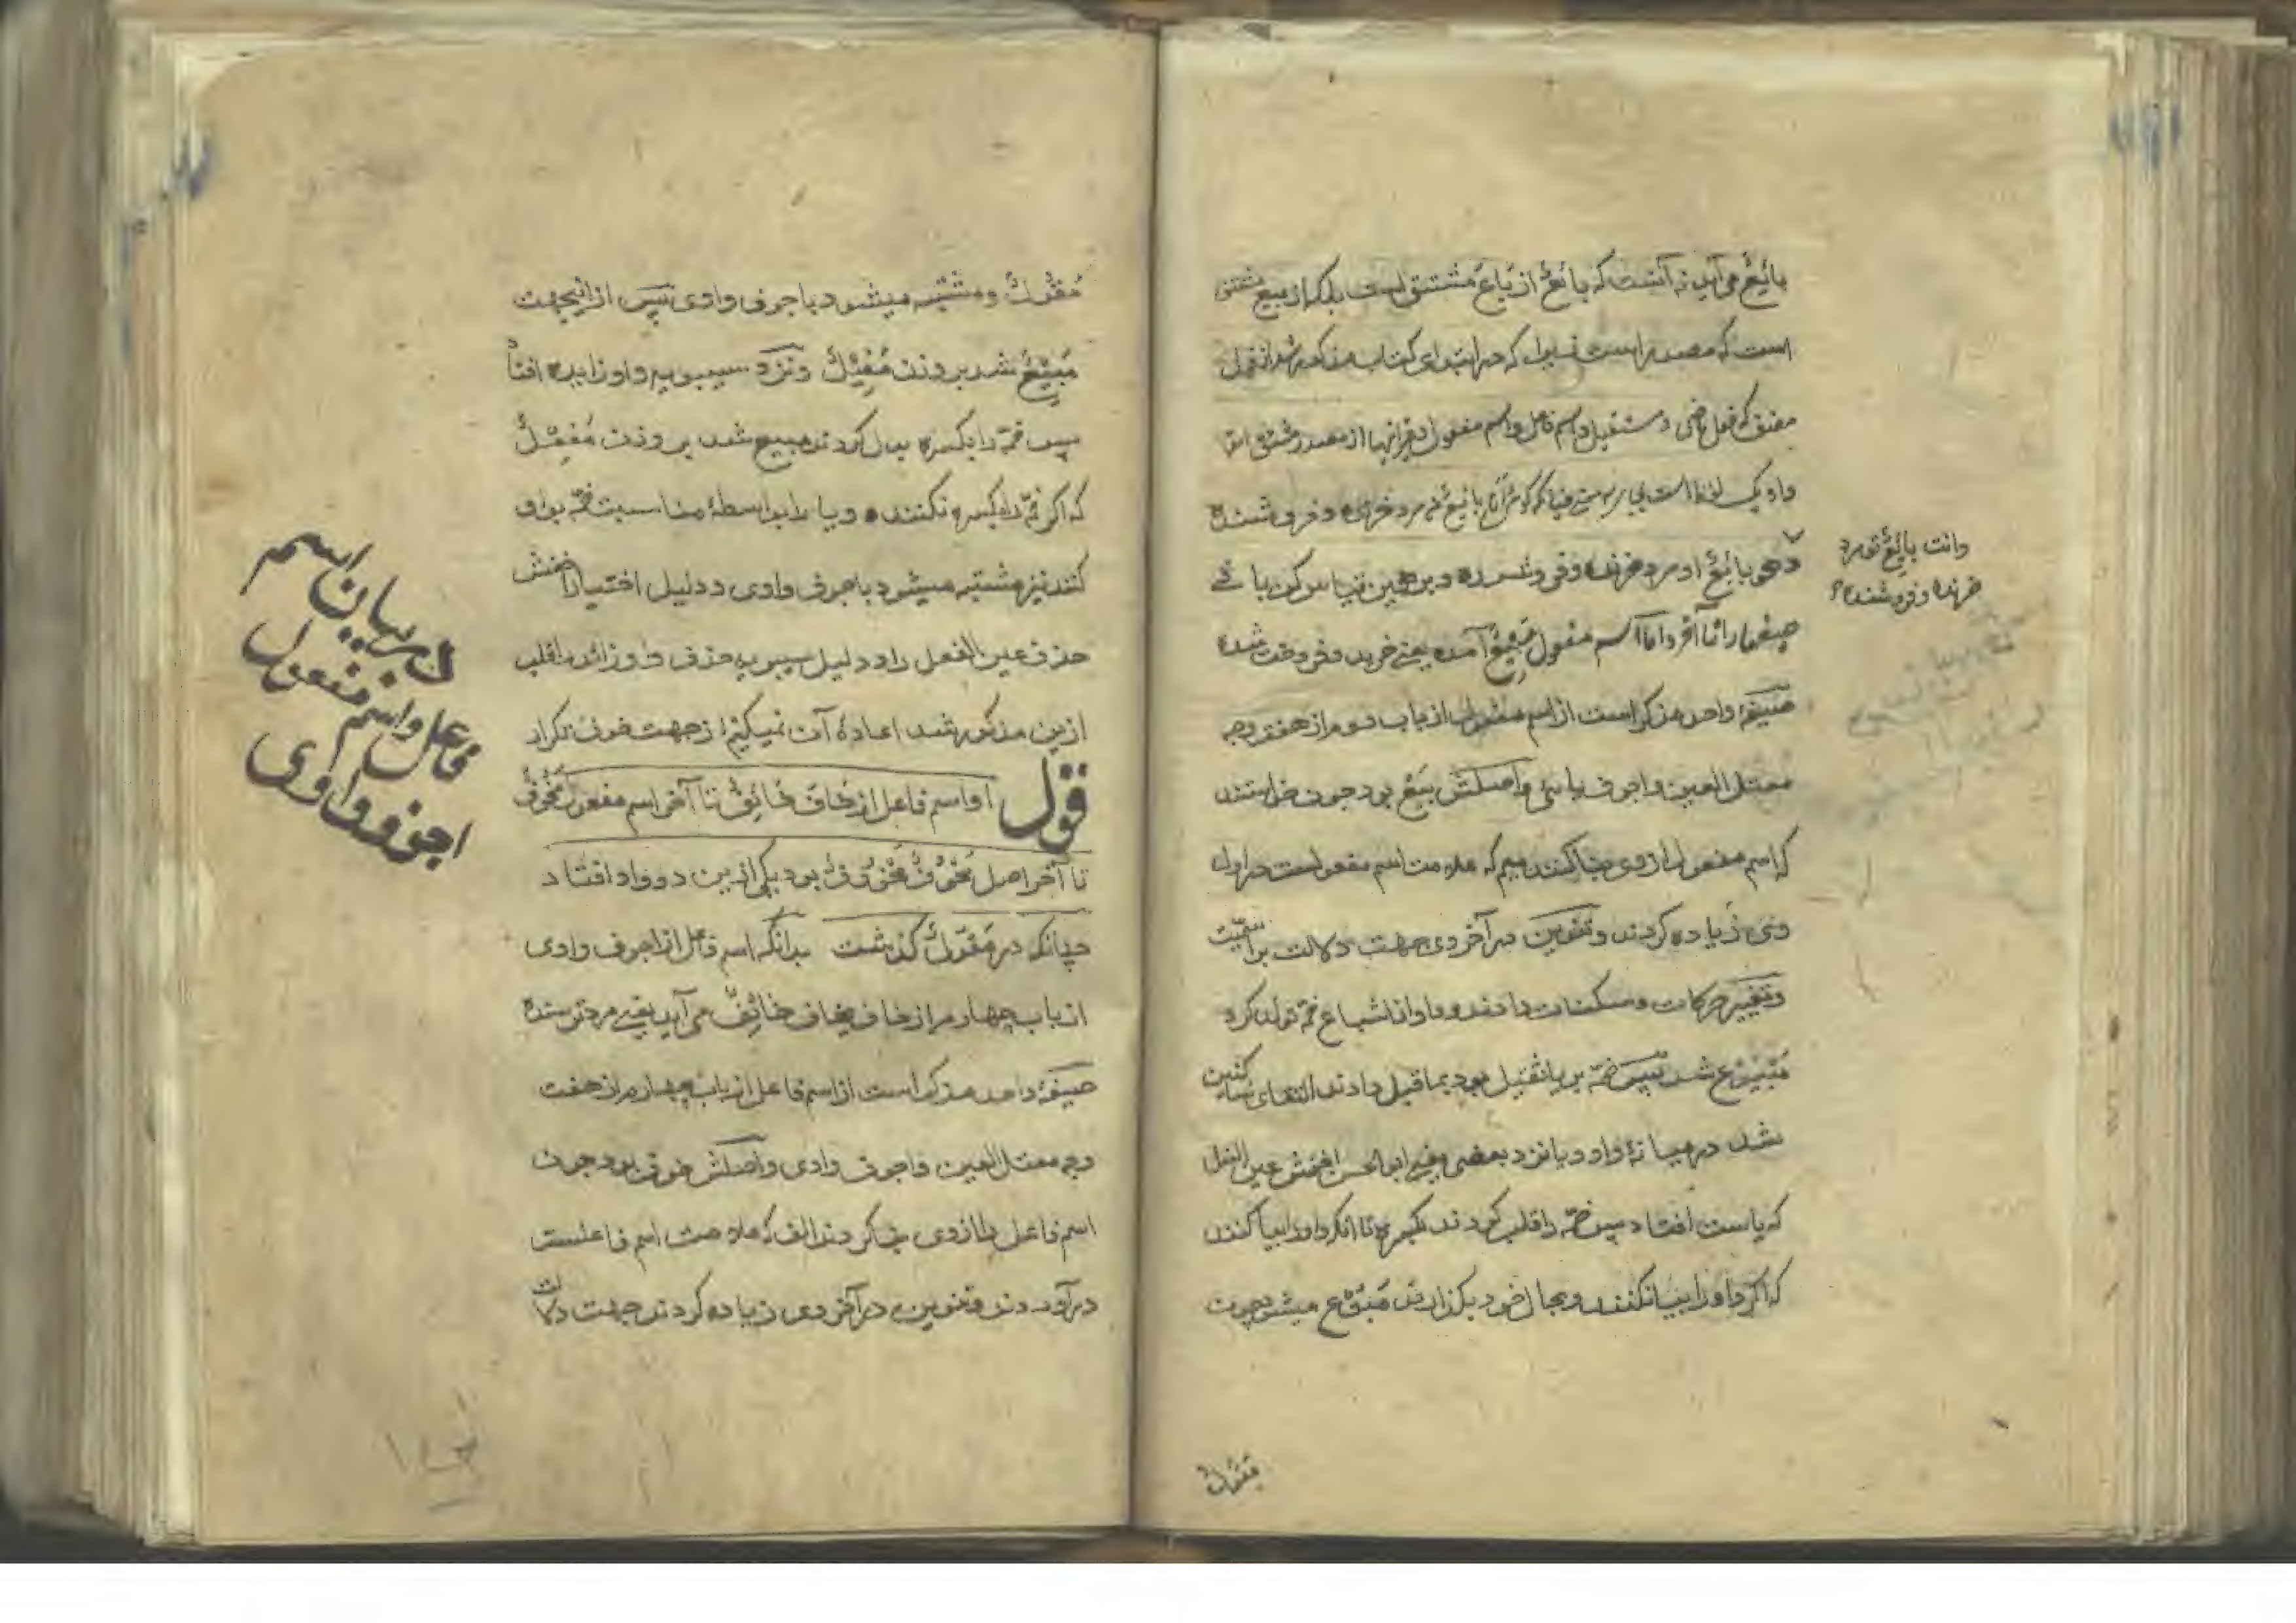 بائِعٌ می آید نه آنست که بائعٌ از بَاعَ مشتق است بلکه از بیع مشتق
است که مصدر است که در ابتدای کتاب مذکور شد از قول
مصنف که فعل ماضی و مستقبل و اسم فاعل و اسم مفعول و غیر اینها از مصدر مشتق
و او یک لفظ است بائع مرد خرنده و فروشنده
و هو بائِعٌ او مرد خرنده و فروشنده و برهمین قیاس کن باقی
صیغها را تا آخر و اما اسم مفعول مَبِیْعٌ آمده یعنی خریده و فروخته شده
صیغهٔ واحد مذکر است از اسم مفعول از باب دوم از هفت وجه
معتل العین و اجوف یائی و اصلش بَیْعٌ بود چون خواستند
که اسم مفعول را از وی بنا کنند میم که علامت اسم مفعولست در اول
وی زیاده کردند و تنوین در آخر وی جهت دلالت بر اسمیّت
و تغییر حرکات و سکنات دادند و واو از اشباع ضمّه تولد کرد
مَبْیُوْع شد پس ضمّه بر یا ثقیل بود بماقبل دادند التقای ساکنین
شد در میانهٔ واو و یا نزد بعضی یعنی ابوالحسن اخفش عین الفعل
که یاست افتاد پس ضمّه را قلب کردند بکسره تا آنکه واو را بیا کنند
که اگر واو را بیا نکنند و بحال خود بگذارند مَبُوْع میشود چون
وانت بایِعٌ تو مرد
خرنده و فروشنده
مَقُوْلٌ
مَقُوْلٌ و مشتبه میشود باجوف واوی پس از اینجهت
مَبِیْعٌ شد بر وزن مَفِیْلٌ و نزد سیبویه واو زایده افتاد
پس ضمّه را بکسره بدل کردند مبیع شد بر وزن مَفِعْلٌ
که اگر ضمّه را بکسره نکنند و یا را بواسطهٔ مناسبت ضمّه بواو
کنند نیز مشتبه میشود باجوف واوی و دلیل اختیار اخفش
حذف عین الفعل را و دلیل سیبویه حذف واو زائد ماقبل
ازین مذکور شد اعادهٔ آن نمیکنم از جهت خوف تکرار
قول او اسم فاعل از خَافَ خَائِفٌ تا آخر اسم مفعول مَخُوْفٌ
تا آخر اصل مَخُوْفٌ مَخْوُوْفٌ بود یکی ازین دو واو افتاد
چنانکه در مَقُوْلٌ گذشت بدانکه اسم فاعل از اجوف واوی
از باب چهارم از خاف یخاف خائِفٌ می آید یعنی مرد ترسنده
صیغهٔ واحد مذکر است از اسم فاعل از باب چهارم از هفت
وجه معتل العین و اجوف واوی و اصلش خوف بود چون
اسم فاعل را از وی بنا کردند الف که علامت اسم فاعلست
درآوردند و تنوین در آخر وی زیاده کردند جهت دلالت
در بیان اسم
فاعل و اسم مفعول
اجوف واوی